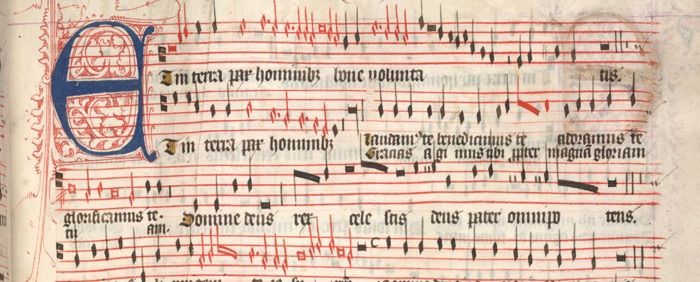 E
T in terra pax hominibȝ bone volunta tis.
T in terra pax hominibȝ laudam te benedicimus te adoramus te
Gracias agimus tibi ppter magnā gloriam
glorificamus te. Domine deus rex cele stis deus pater omnipo tens.
tu am.